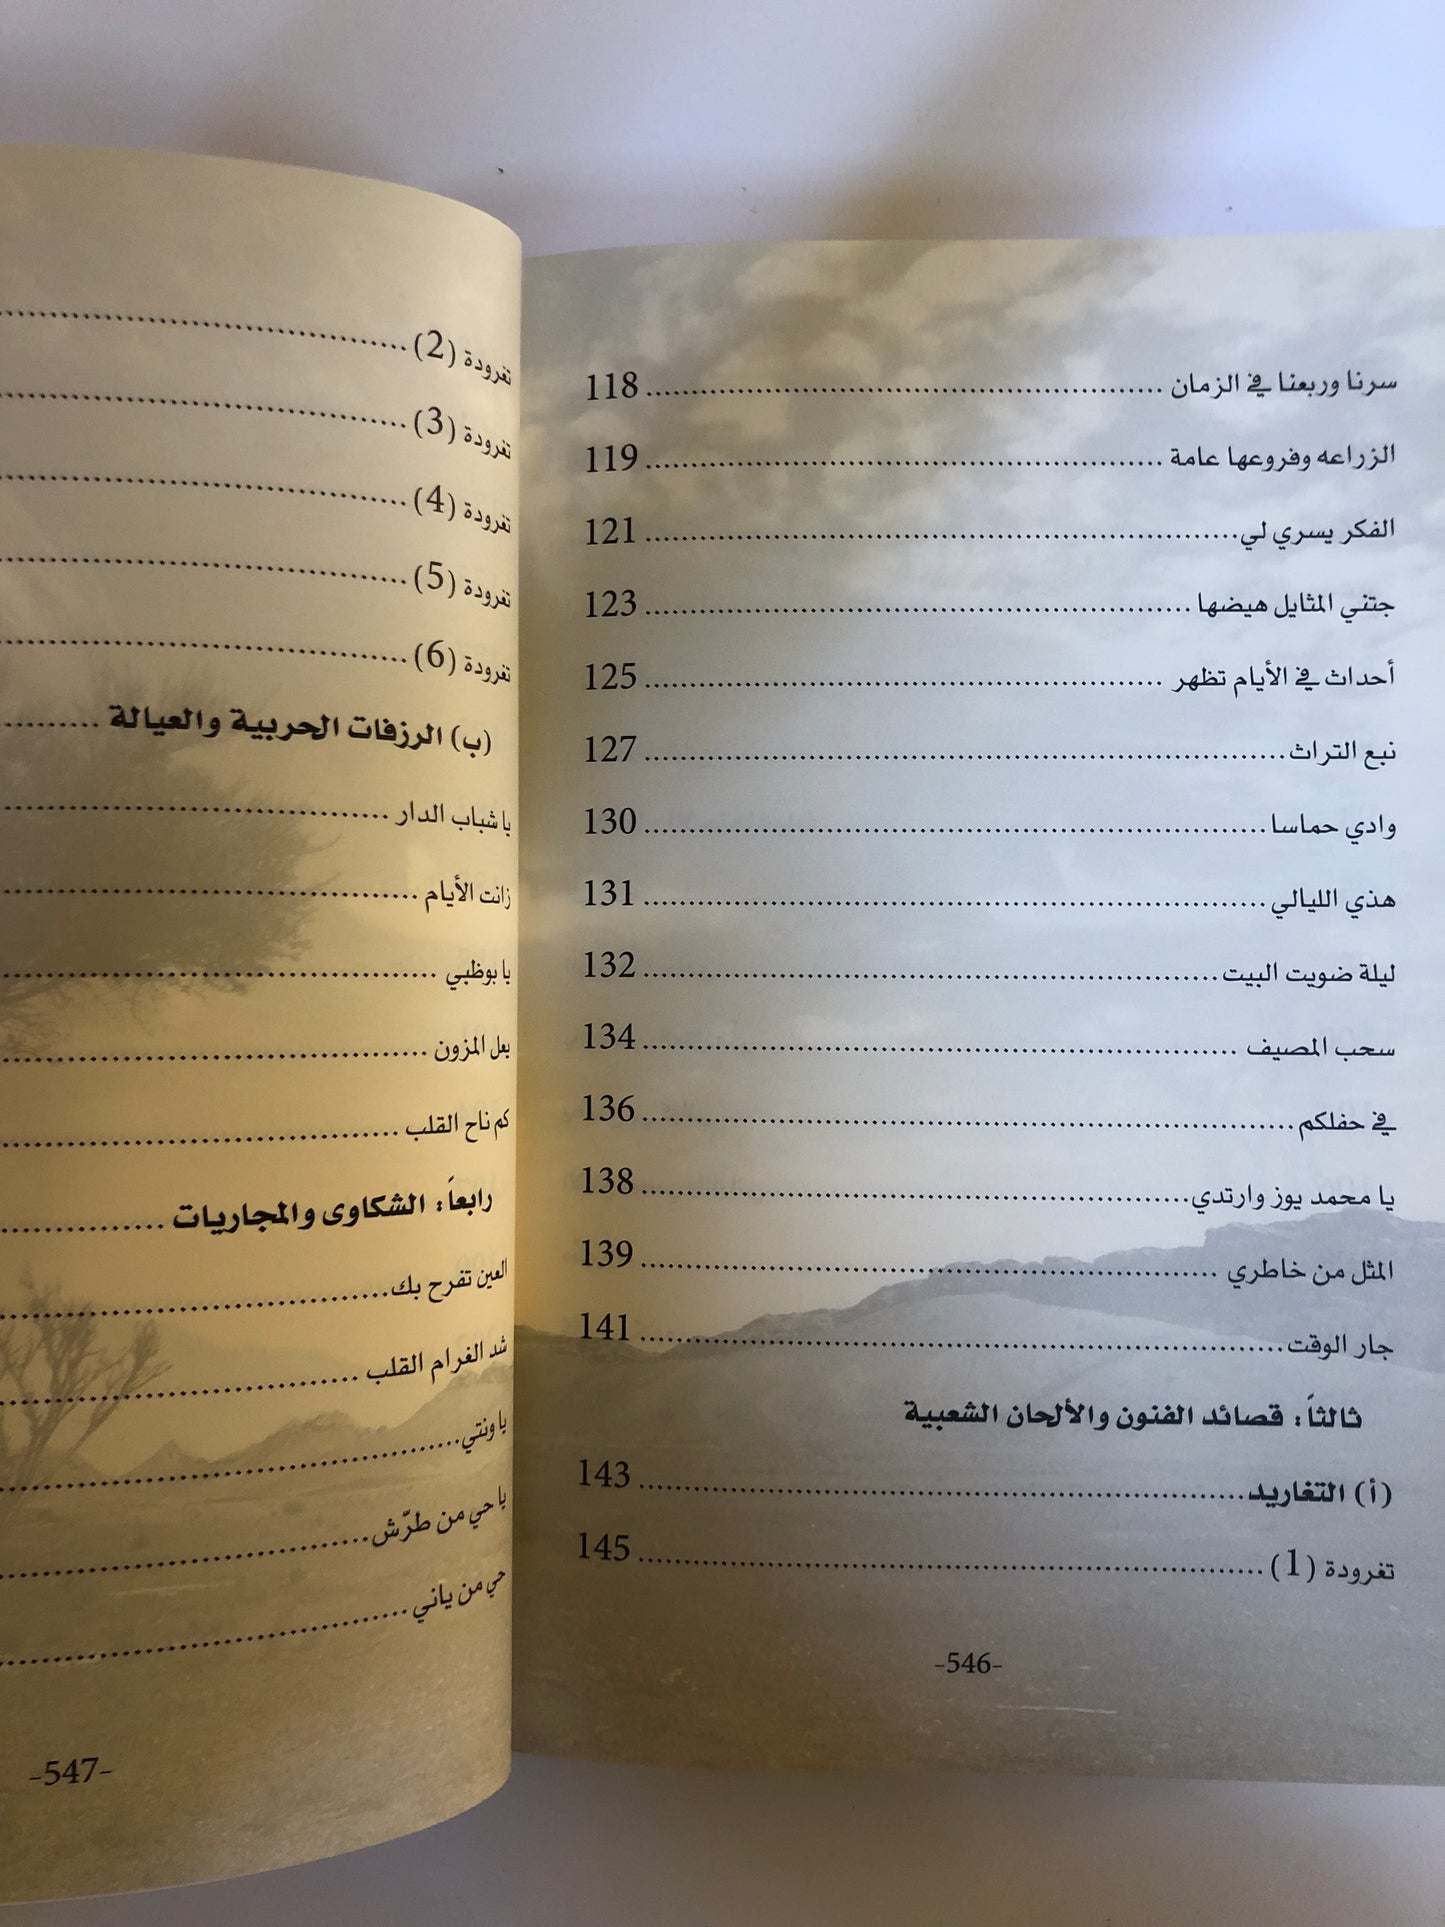 سرنا وربعنا في الزمان ........ 118
الزراعه وفروعها عامة ........ 119
الفكر يسري لي ........ 121
جتني المثايل هيضها ........ 123
أحداث في الأيام تظهر ........ 125
نبع التراث ........ 127
وادي حماسا ........ 130
هذي الليالي ........ 131
ليلة ضويت البيت ........ 132
سحب المصيف ........ 134
في حفلكم ........ 136
يا محمد يوز وارتدي ........ 138
المثل من خاطري ........ 139
جار الوقت ........ 141
ثالثاً: قصائد الفنون والألحان الشعبية
(أ) التغاريد ........ 143
تغرودة (1) ........ 145
-546-
تغرودة (2) ........
تغرودة (3) ........
تغرودة (4) ........
تغرودة (5) ........
تغرودة (6) ........
(ب) الرزفات الحربية والعيالة ........
يا شباب الدار ........
زانت الأيام ........
يا بوظبي ........
بعل المزون ........
كم ناح القلب ........
رابعاً: الشكاوى والمجاريات ........
العين تفرح بك ........
شد الغرام القلب ........
يا ونتي ........
يا حي من طرّش ........
حي من ياني ........
-547-